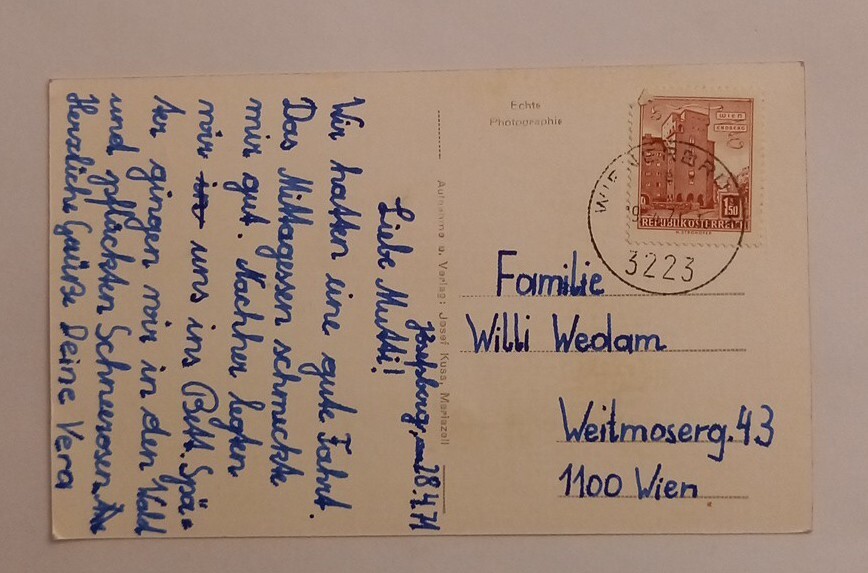 Josefsberg, am 28.4.71
Liebe Mutti!
Wir hatten eine gute Fahrt.
Das Mittagessen schmeckte
mir gut. Nachher legten
wir uns ins Bett. Spä=
ter gingen wir in den Wald
und pflückten Schneerosen.
Herzliche Grüße Deine Vera
Aufnahme u. Verlag: Josef Kuss, Mariazell
Echte
Photographie
WIEN
ERDBERG
1.50
REPUBLIK ÖSTERREICH
WIENERBRUCK
3223
Familie
Willi Wedam
Weitmoserg. 43
1100 Wien